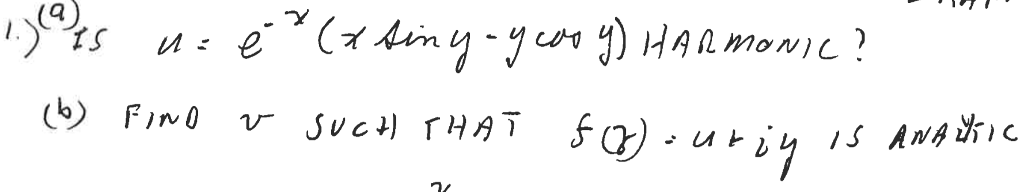 1.) (a) IS u = e^-x (x sin y - y cos y) HARMONIC?
(b) FIND v SUCH THAT f(z) = u + iy IS ANALYTIC